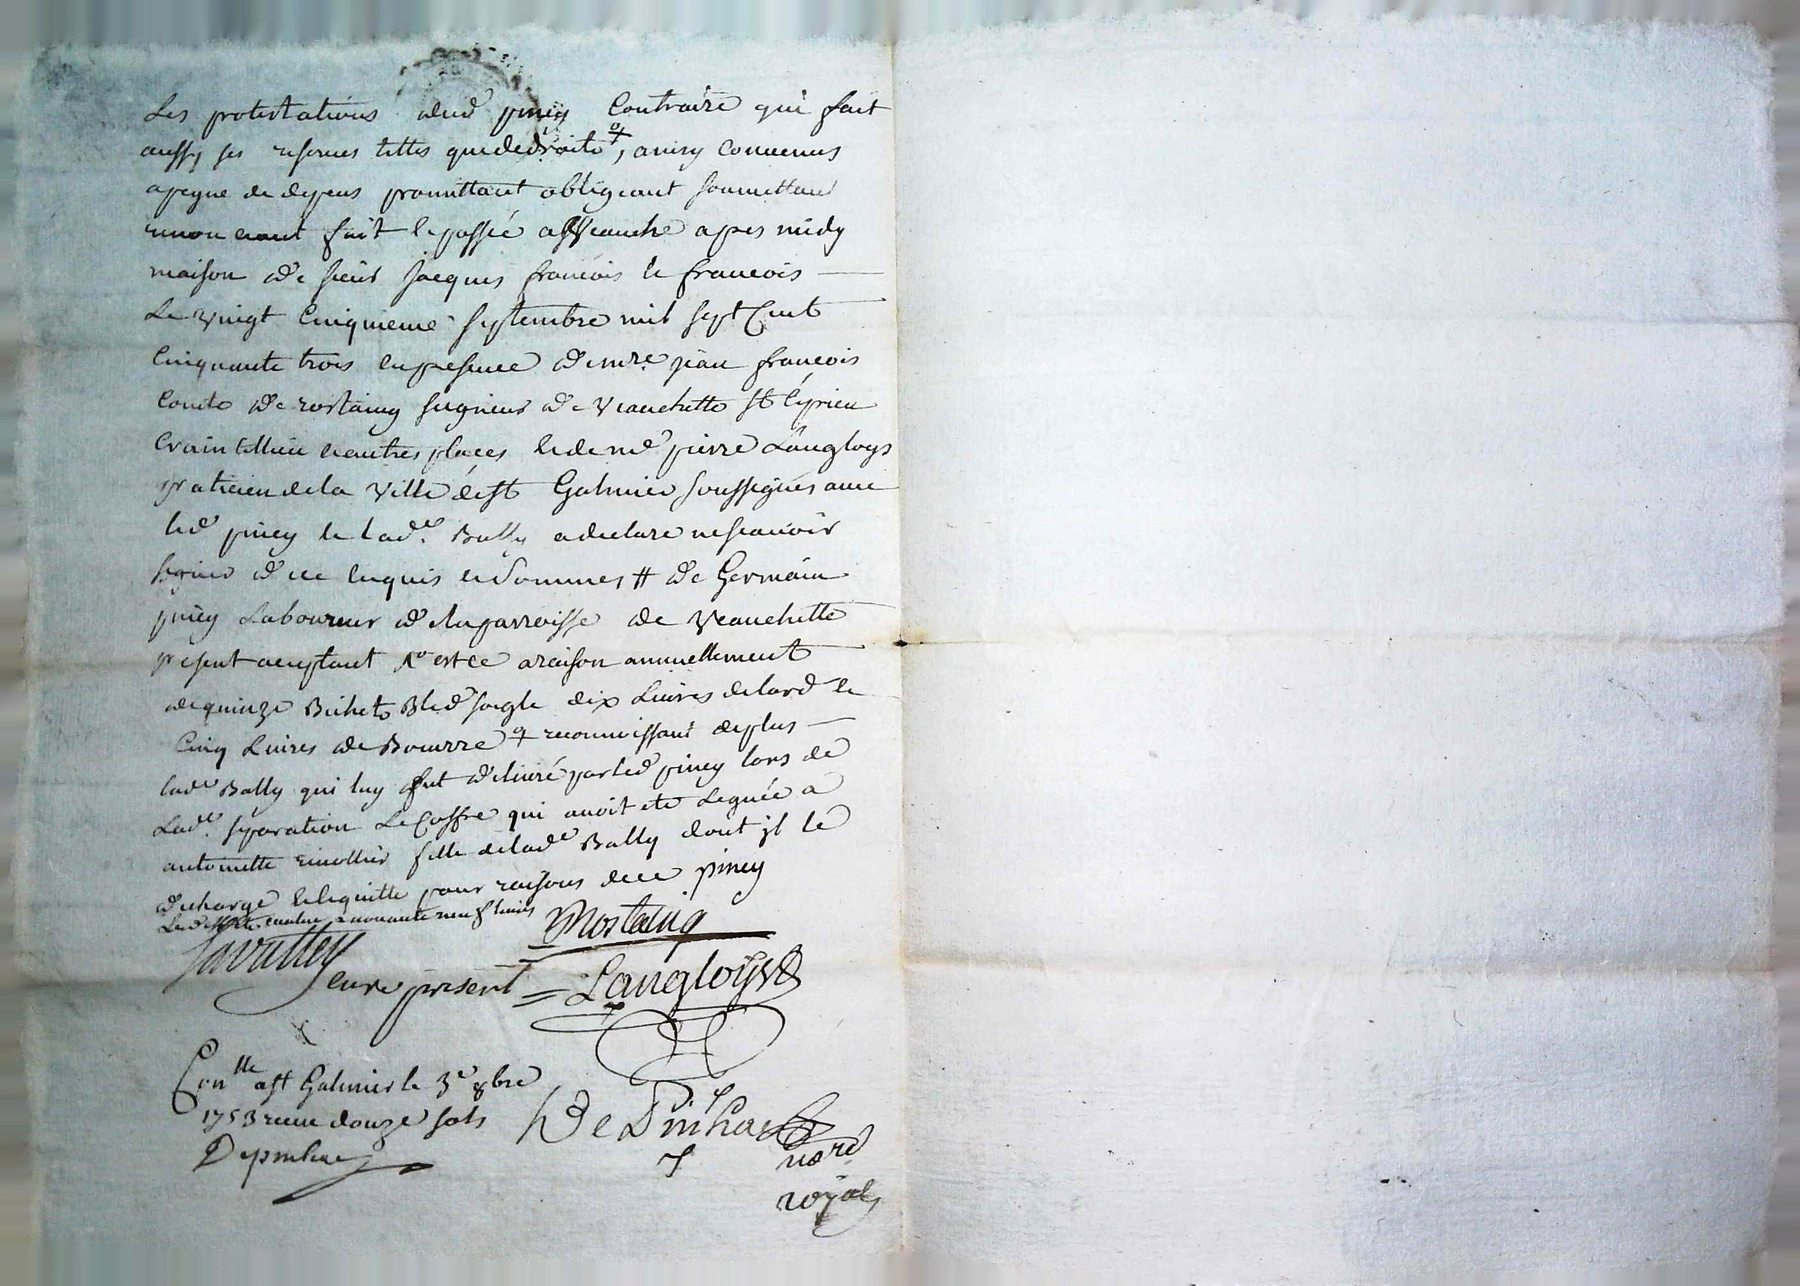 Les protestations dud piney Contraire qui fait
aussy ses reserves telles que de droits, ainsy convenus
a peyne de depens promettant obligeant soumettant
renoncant fait & passé a Veauche apres midy
maison de sieur Jacques francois le francois
Le vingt Cinquieme septembre mil sept Cent
Cinquante trois en presence de mre jean francois
Comte de rostaing seigneur de Veauchette St Cyprien
Craintillieu & autres places & de me pierre Langloys
praticien de la Ville de St Galmier soussignés avec
led piney & lade Bally a declaré ne scavoir
signer de ce enquis & sommes # de Germain
piney Laboureur de la parroisse de Veauchette
present acceptant Xo est ce a raison annuellement
de quinze Bichets Bled seigle dix Livres de lard &
Cinq Livres de Beurre reconnoissant de plus
lade Bally qui luy fut delivré par led piney lors de
Lade separation Le Coffre qui avoit eté Legué a
antoinette fille de lade Bally dont jl le
decharge & le quitte pour raisons de ce piney
quatre & nonante neuf livres
Rostaing
curé present Langloys
Conllé a St Galmier le 3e 8bre
1753 receu douze sols
nore
royal